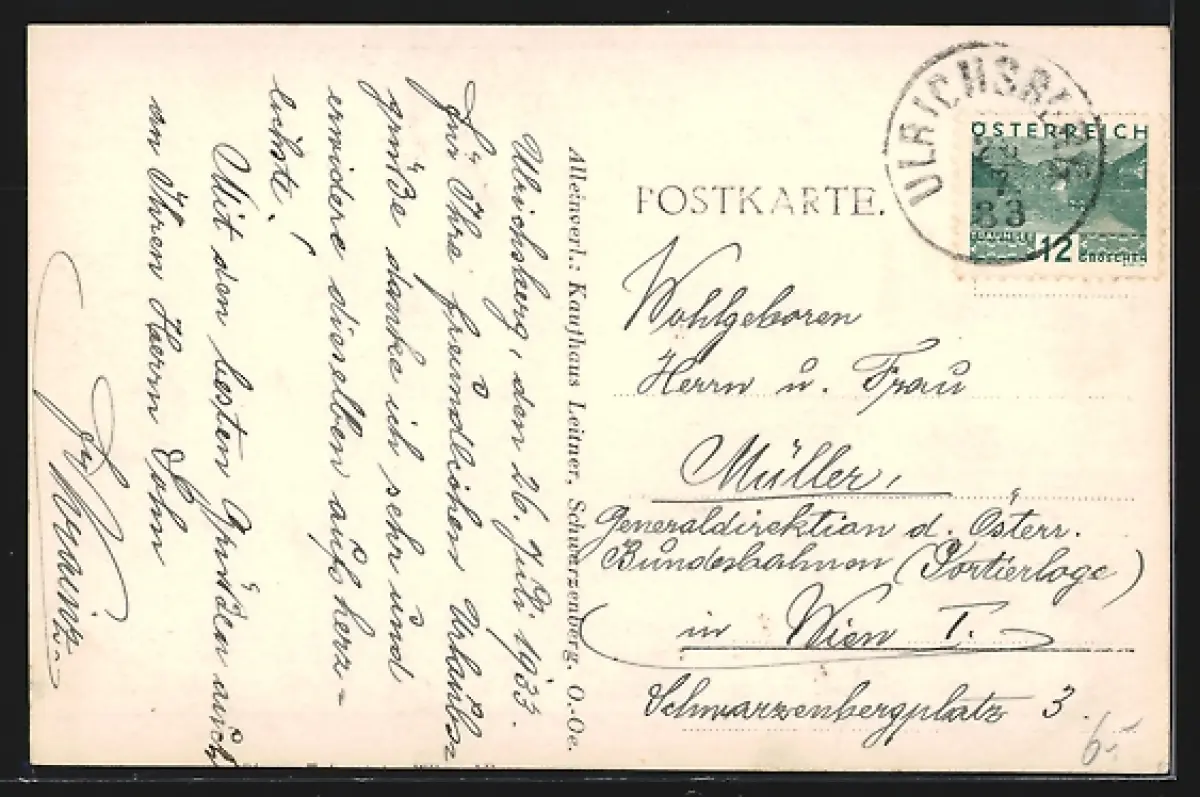 Ulrichsberg, den 26. Juli 1933.
Für Ihre freundlichen Urlaubs-
grüße danke ich sehr und
erwidere dieselben aufs herz-
lichste!
Mit den besten Grüßen auch
an Ihren Herrn Sohn
Alleinverl.: Kaufhaus Leitner, Schwarzenberg, O.-Oe.
POSTKARTE.
ULRICHSBERG
ÖSTERREICH
12
GROSCHEN
Wohlgeboren
Herrn u. Frau
Müller,
Generaldirektion d. Österr.
Bundesbahnen (Portierloge)
in Wien I.
Schwarzenbergplatz 3.
6.-